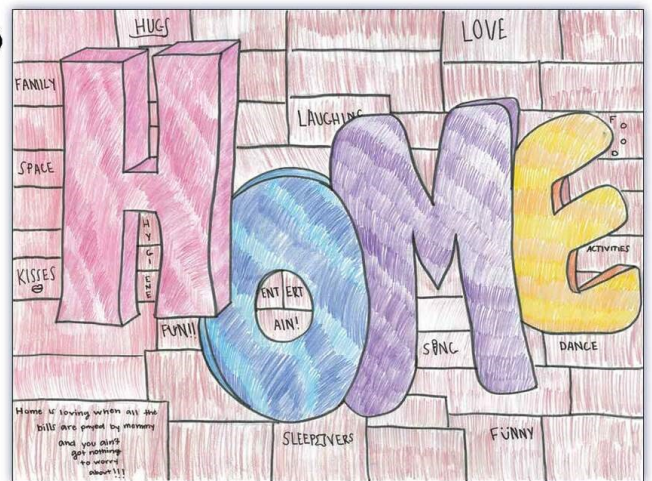 HUGS
LOVE
FAMILY
LAUGHING
F
O
O
D
SPACE
HOME
HY
GI
ENE
ACTIVITIES
KISSES
ENTERT
AIN!
FUN!!
SONG
DANCE
Home is loving when all the
bills are payed by mommy
and you ain't
got nothing
to worry
about!!!
SLEEPOVERS
FÜNNY